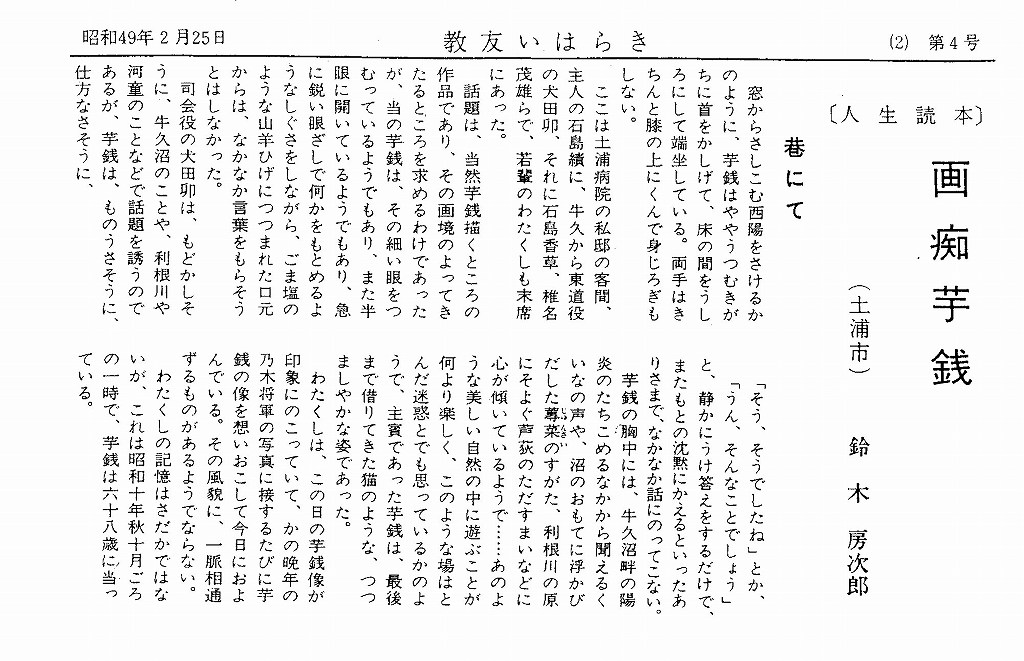 昭和49年2月25日
教友いはらき
(2) 第4号
〔人生読本〕
画痴芋銭
(土浦市) 鈴木房次郎
巷にて
窓からさしこむ西陽をさけるか
のように、芋銭はややうつむきが
ちに首をかしげて、床の間をうし
ろにして端坐している。両手はき
ちんと膝の上にくんで身じろぎも
しない。
ここは土浦病院の私邸の客間、
主人の石島績に、牛久から東道役
の犬田卯、それに石島香草、椎名
茂雄らで、若輩のわたくしも末席
にあった。
話題は、当然芋銭描くところの
作品であり、その画境のよってき
たるところを求めるわけであった
が、当の芋銭は、その細い眼をつ
むっているようでもあり、また半
眼に開いているようでもあり、急
に鋭い眼ざしで何かをもとめるよ
うなしぐさをしながら、ごま塩の
ような山羊ひげにつつまれた口元
からは、なかなか言葉をもらそう
とはしなかった。
司会役の犬田卯は、もどかしそ
うに、牛久沼のことや、利根川や
河童のことなどで話題を誘うので
あるが、芋銭は、ものうさそうに、
仕方なさそうに、
「そう、そうでしたね」とか、
「うん、そんなことでしょう」
と、静かにうけ答えをするだけで、
またもとの沈黙にかえるといったあ
りさまで、なかなか話にのってこない。
芋銭の胸中には、牛久沼畔の陽
炎のたちこめるなかから聞えるく
いなの声や、沼のおもてに浮かび
だした蓴菜のすがた、利根川の原
にそよぐ芦荻のただすまいなどに
心が傾いているようで……あのよ
うな美しい自然の中に遊ぶことが
何より楽しく、このような場はと
んだ迷惑とでも思っているかのよ
うで、主賓であった芋銭は、最後
まで借りてきた猫のような、つつ
ましやかな姿であった。
わたくしは、この日の芋銭像が
印象にのこっていて、かの晩年の
乃木将軍の写真に接するたびに芋
銭の像を想いおこして今日におよ
んでいる。その風貌に、一脈相通
ずるものがあるようでならない。
わたくしの記憶はさだかではな
いが、これは昭和十年秋十月ごろ
の一時で、芋銭は六十八歳に当っ
ている。